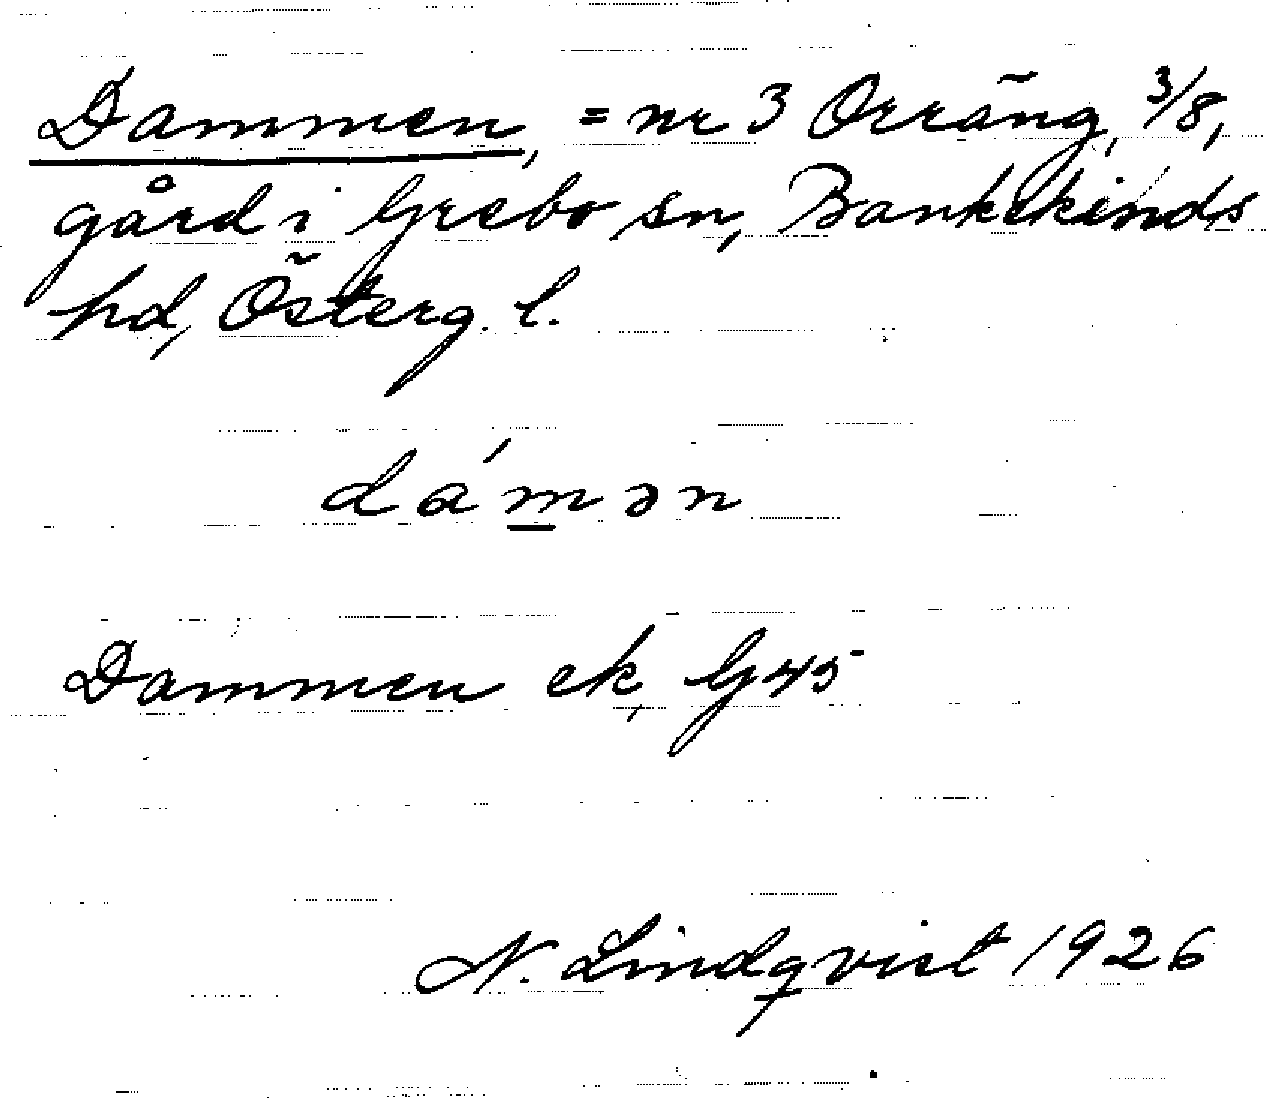 Dammen, = nr 3 Orräng, 3/8,
gård i Grebo sn, Bankekinds
hd, Österg. l.
dám̲ən
Dammen ek, G45
N. Lindqvist 1926